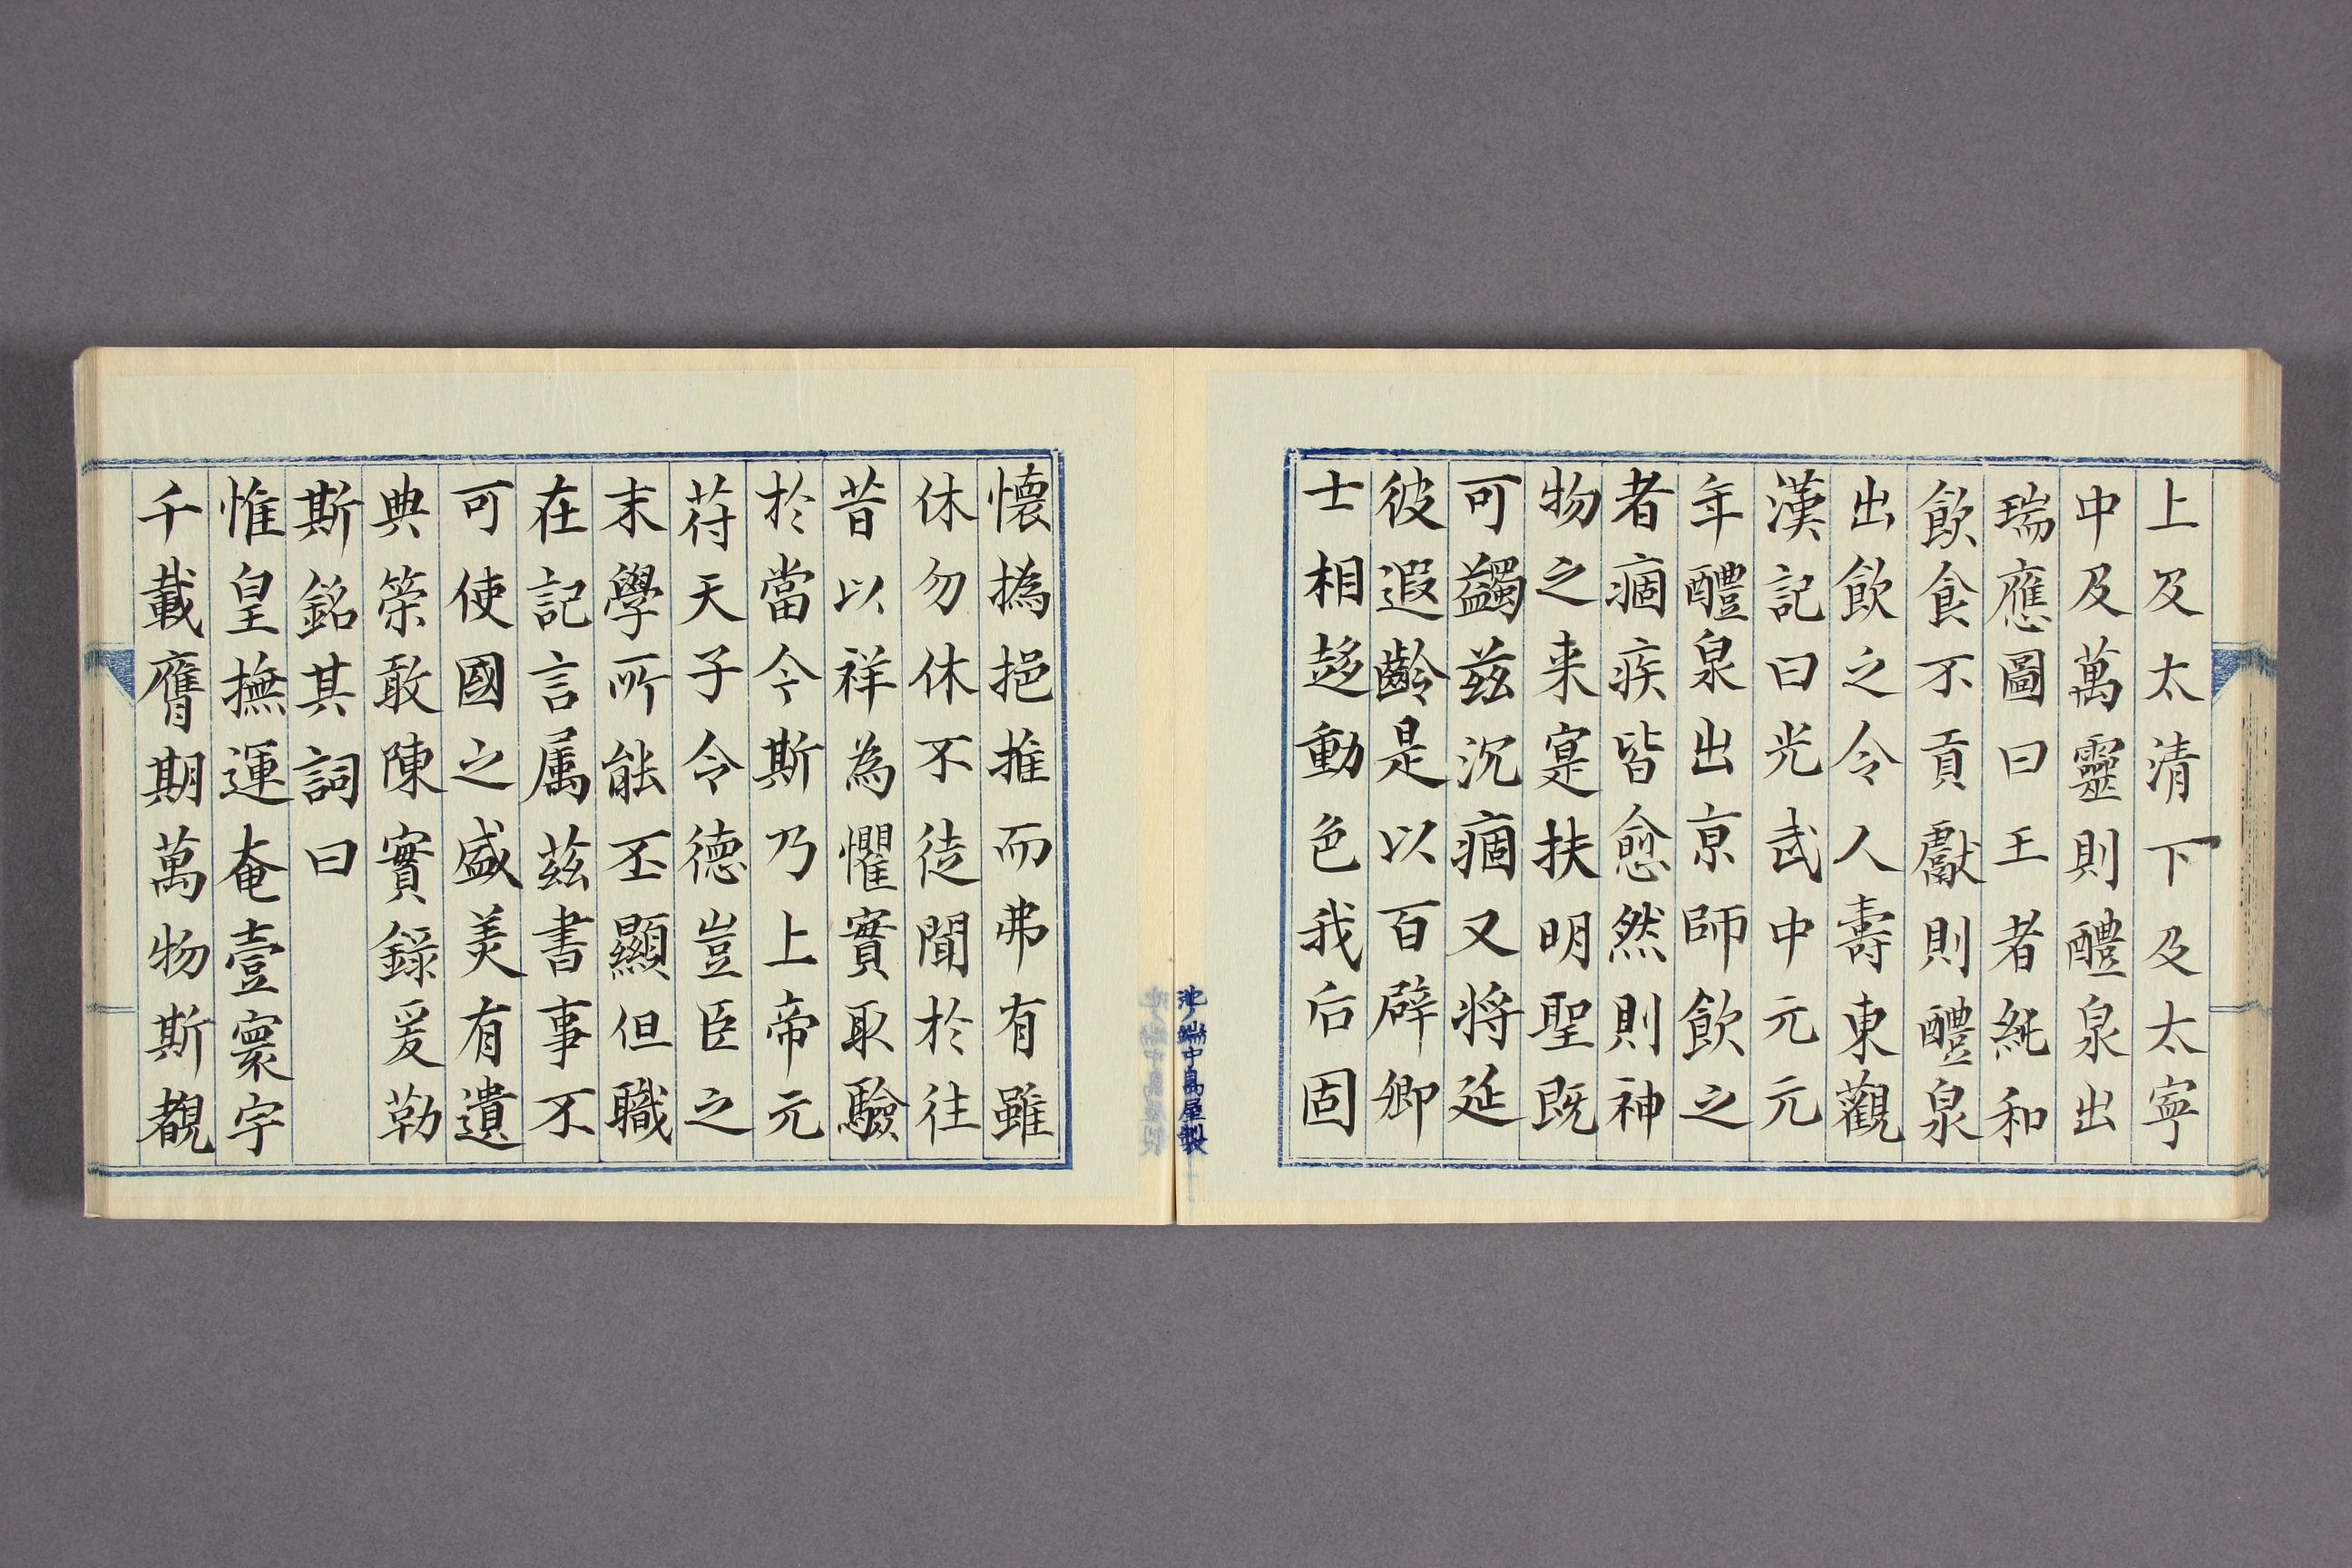 上及太清下及太寧
中及萬靈則醴泉出
瑞應圖曰王者純和
飲食不貢獻則醴泉
出飲之令人壽東觀
漢記曰光武中元元
年醴泉出京師飲之
者痼疾皆愈然則神
物之来寔扶明聖既
可蠲兹沉痼又将延
彼遐齡是以百辟卿
士相趍動色我后固
懷撝挹推而弗有雖
休勿休不徒聞於往
昔以祥為懼實取驗
於當今斯乃上帝元
苻天子令德豈臣之
末學所能丕顯但職
在記言属兹書事不
可使國之盛美有遺
典筞敢陳實録爰勒
斯銘其詞曰
惟皇撫運奄壹寰宇
千載膺期萬物斯覩
池ノ端中島屋製